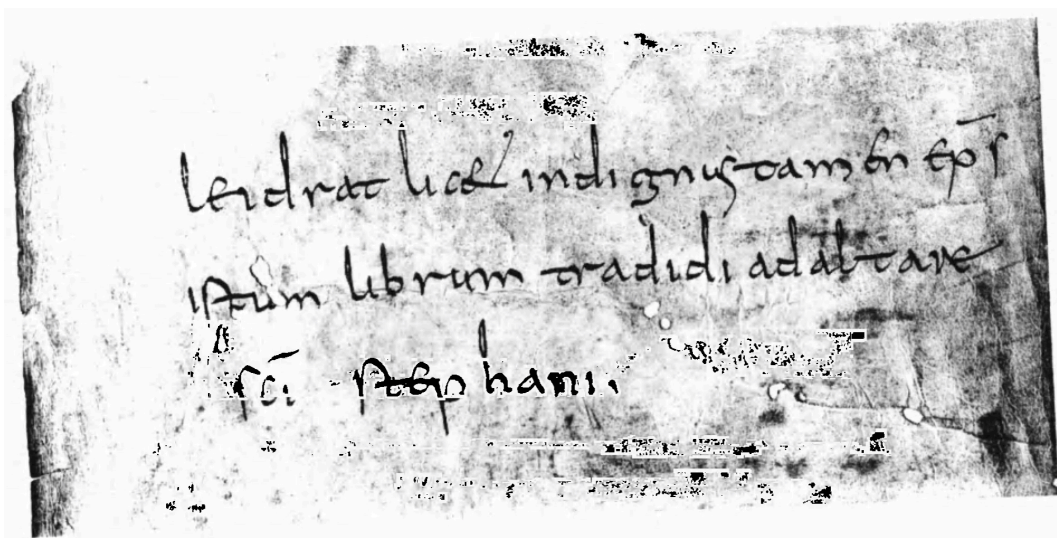 leidrat licet indignus tamen ep̄s
istum librum tradidi ad altare
sc̄i stephani.